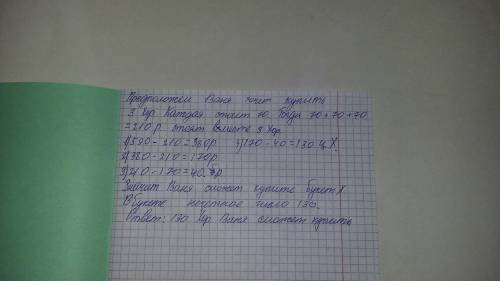 Предположем Ваня хочет купить
3 хр Каждая стоит 70. Тогда 70+70+70
=210 р стоят вместе 3 хр.
1) 590-210=380р 4) 170-40=130 ц. Х
2) 380-210=170р
3) 210-170=40р
Значит Ваня сможет купить букет
В букете нечетное число 130
Ответ: 130 хр Ваня сможет купить